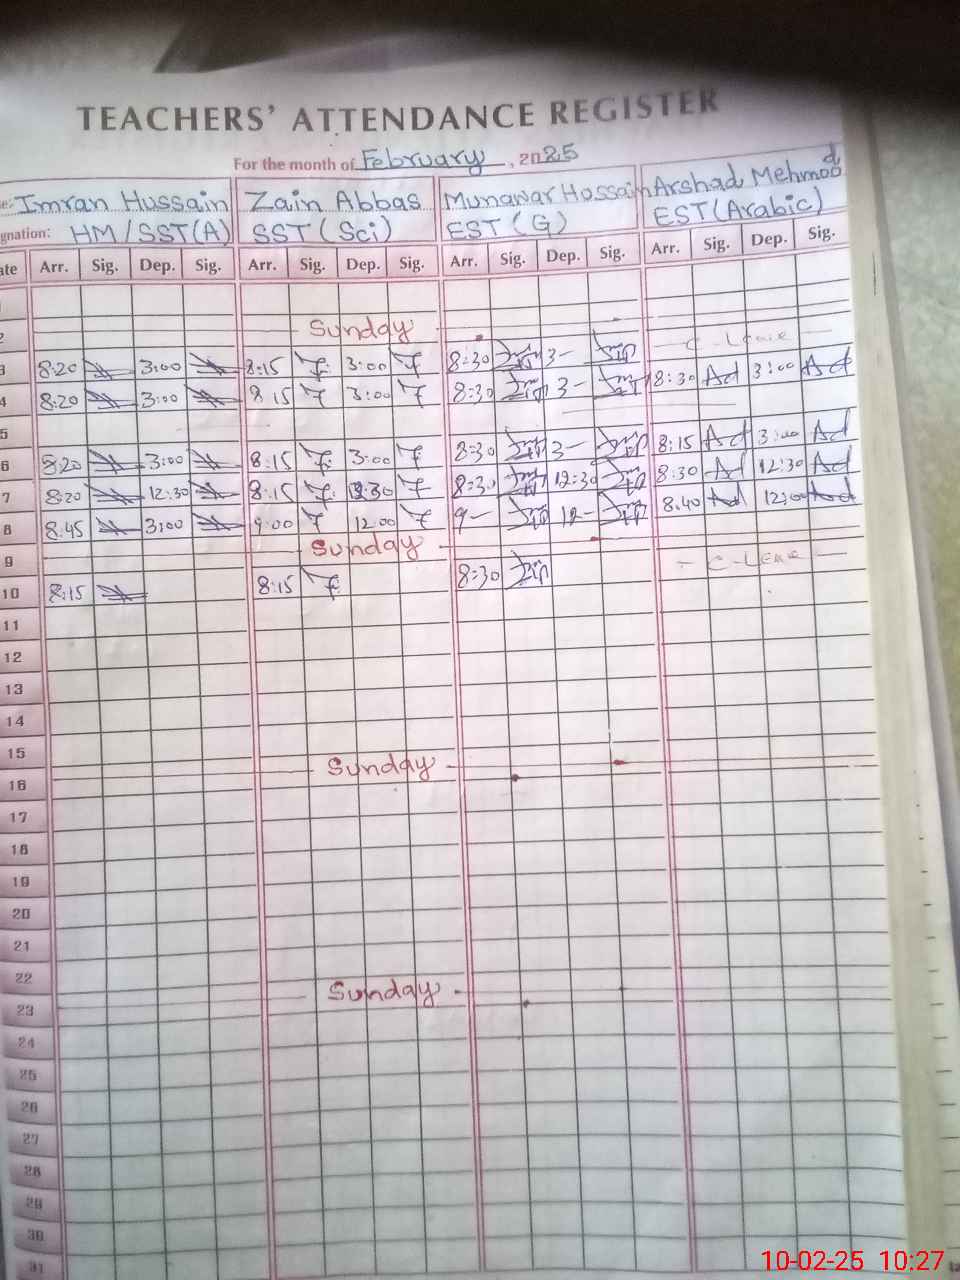 TEACHERS' ATTENDANCE REGISTER
For the month of February, 2025
Imran Hussain Zain Abbas Munawar Hossain Arshad Mehmood
gnation: HM/SST(A) SST (Sci) EST (G) EST (Arabic)
ate Arr. Sig. Dep. Sig. Arr. Sig. Dep. Sig. Arr. Sig. Dep. Sig. Arr. Sig. Dep. Sig.
2 Sunday
3 8:20 3:00 8:15 3:00 8:30 3-
4 8:20 3:00 8:15 3:00 8:30 3- 8:30 Ad 3:00 Ad
5
6 8:20 3:00 8:15 3:00 8:30 3- 8:15 Ad 3:00 Ad
7 8:20 12:30 8:15 8:30 12:30 8:30 Ad 12:30 Ad
8 8:45 3:00 9:00 12:00 9- 12- 8:40 Ad Ad
9 Sunday
10 8:15 8:15 8:30
11
12
13
14
15
16 Sunday
17
18
19
20
21
22
23 Sunday
24
25
26
27
28
29
30
31
10-02-25 10:27